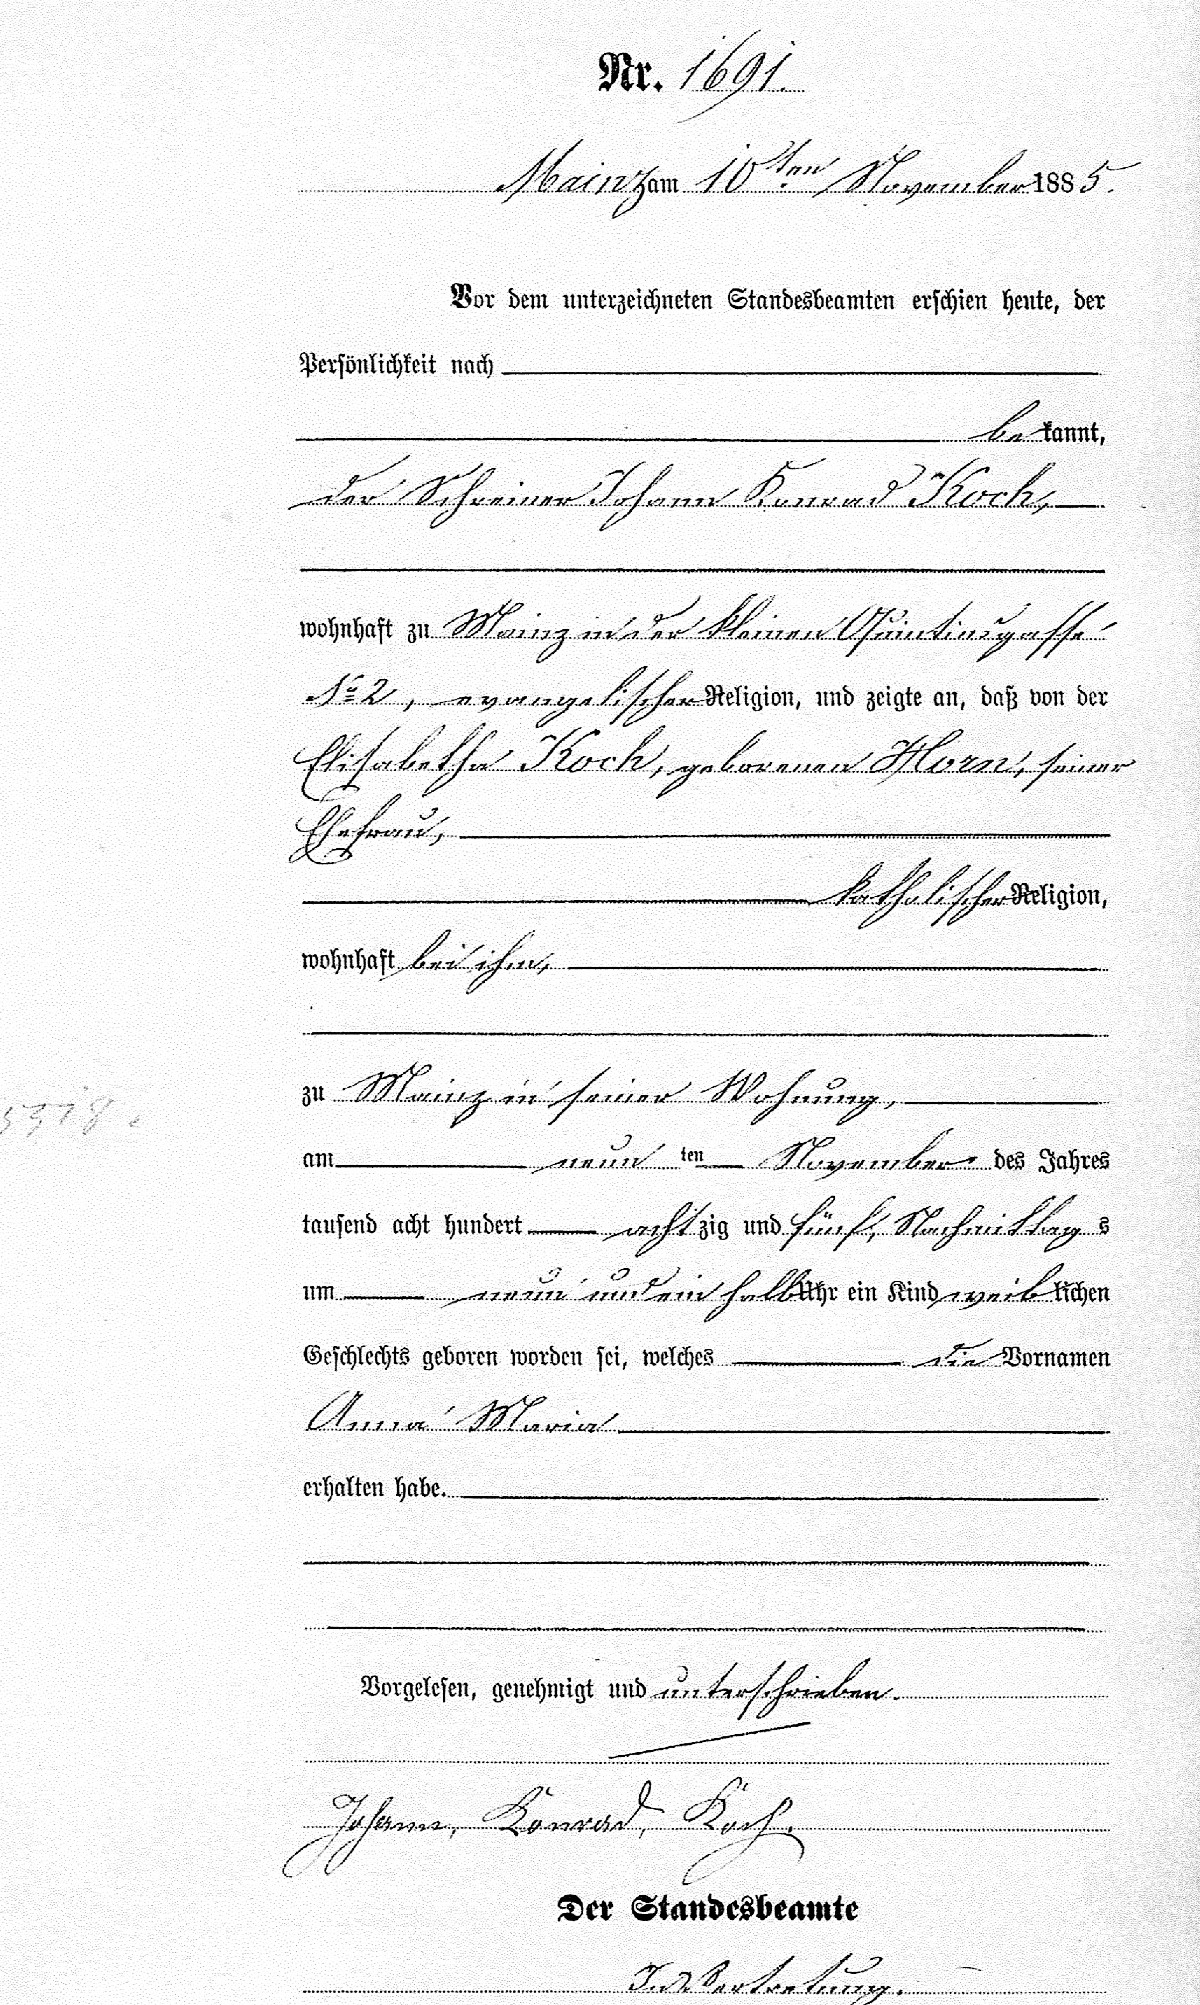 Nr. 1691.
Mainz am 10ten November 1885.
Vor dem unterzeichneten Standesbeamten erschien heute, der
Persönlichkeit nach
bekannt,
der Schreiner Johann Konrad Koch,
wohnhaft zu Mainz in der kleinen Quintinsgasse
No 2, evangelischer Religion, und zeigte an, daß von der
Elisabetha Koch, geborenen Horn, seiner
Ehefrau,
katholischer Religion,
wohnhaft bei ihm,
zu Mainz in seiner Wohnung,
am neun ten November des Jahres
tausend acht hundert achtzig und fünf, Nachmittags
um neun und ein halb Uhr ein Kind weiblichen
Geschlechts geboren worden sei, welches die Vornamen
Anna Maria
erhalten habe.
Vorgelesen, genehmigt und unterschrieben.
Johann, Konrad, Koch.
Der Standesbeamte
In Vertretung.